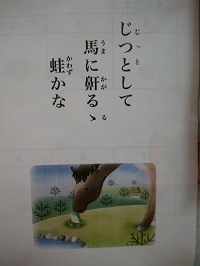 じつとして
じっと
馬に鼾るゝ
うま かが る
蛙かな
かわず